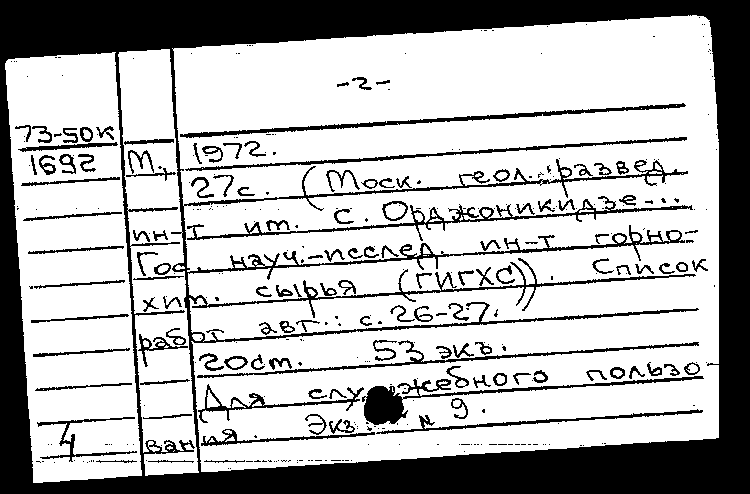 -2-
73-50К
1692 М., 1972.
27с. (Моск. геол.-развед.
ин-т им. С. Орджоникидзе...
Гос. науч.-исслед. ин-т горно-
хим. сырья (ГИГХС)). Список
работ авт.: с. 26-27.
20см. 53 экз.
Для служебного пользо-
вания. Экз. № 9.
4